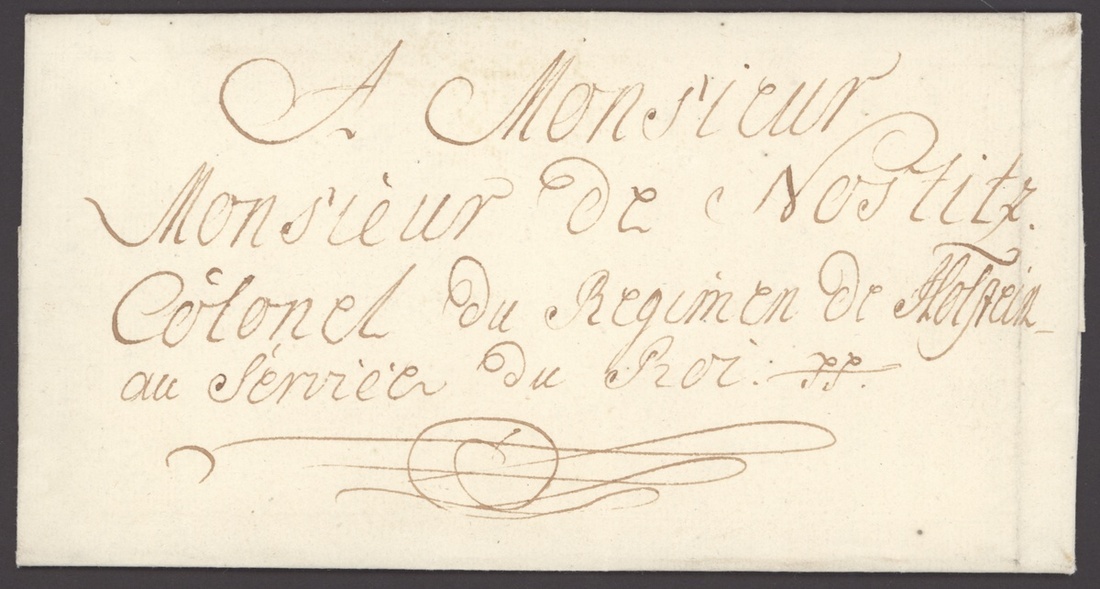 A Monsieur
Monsieur de Nostitz.
Côlonel du Regimen de Holstein
au Service du Roi.